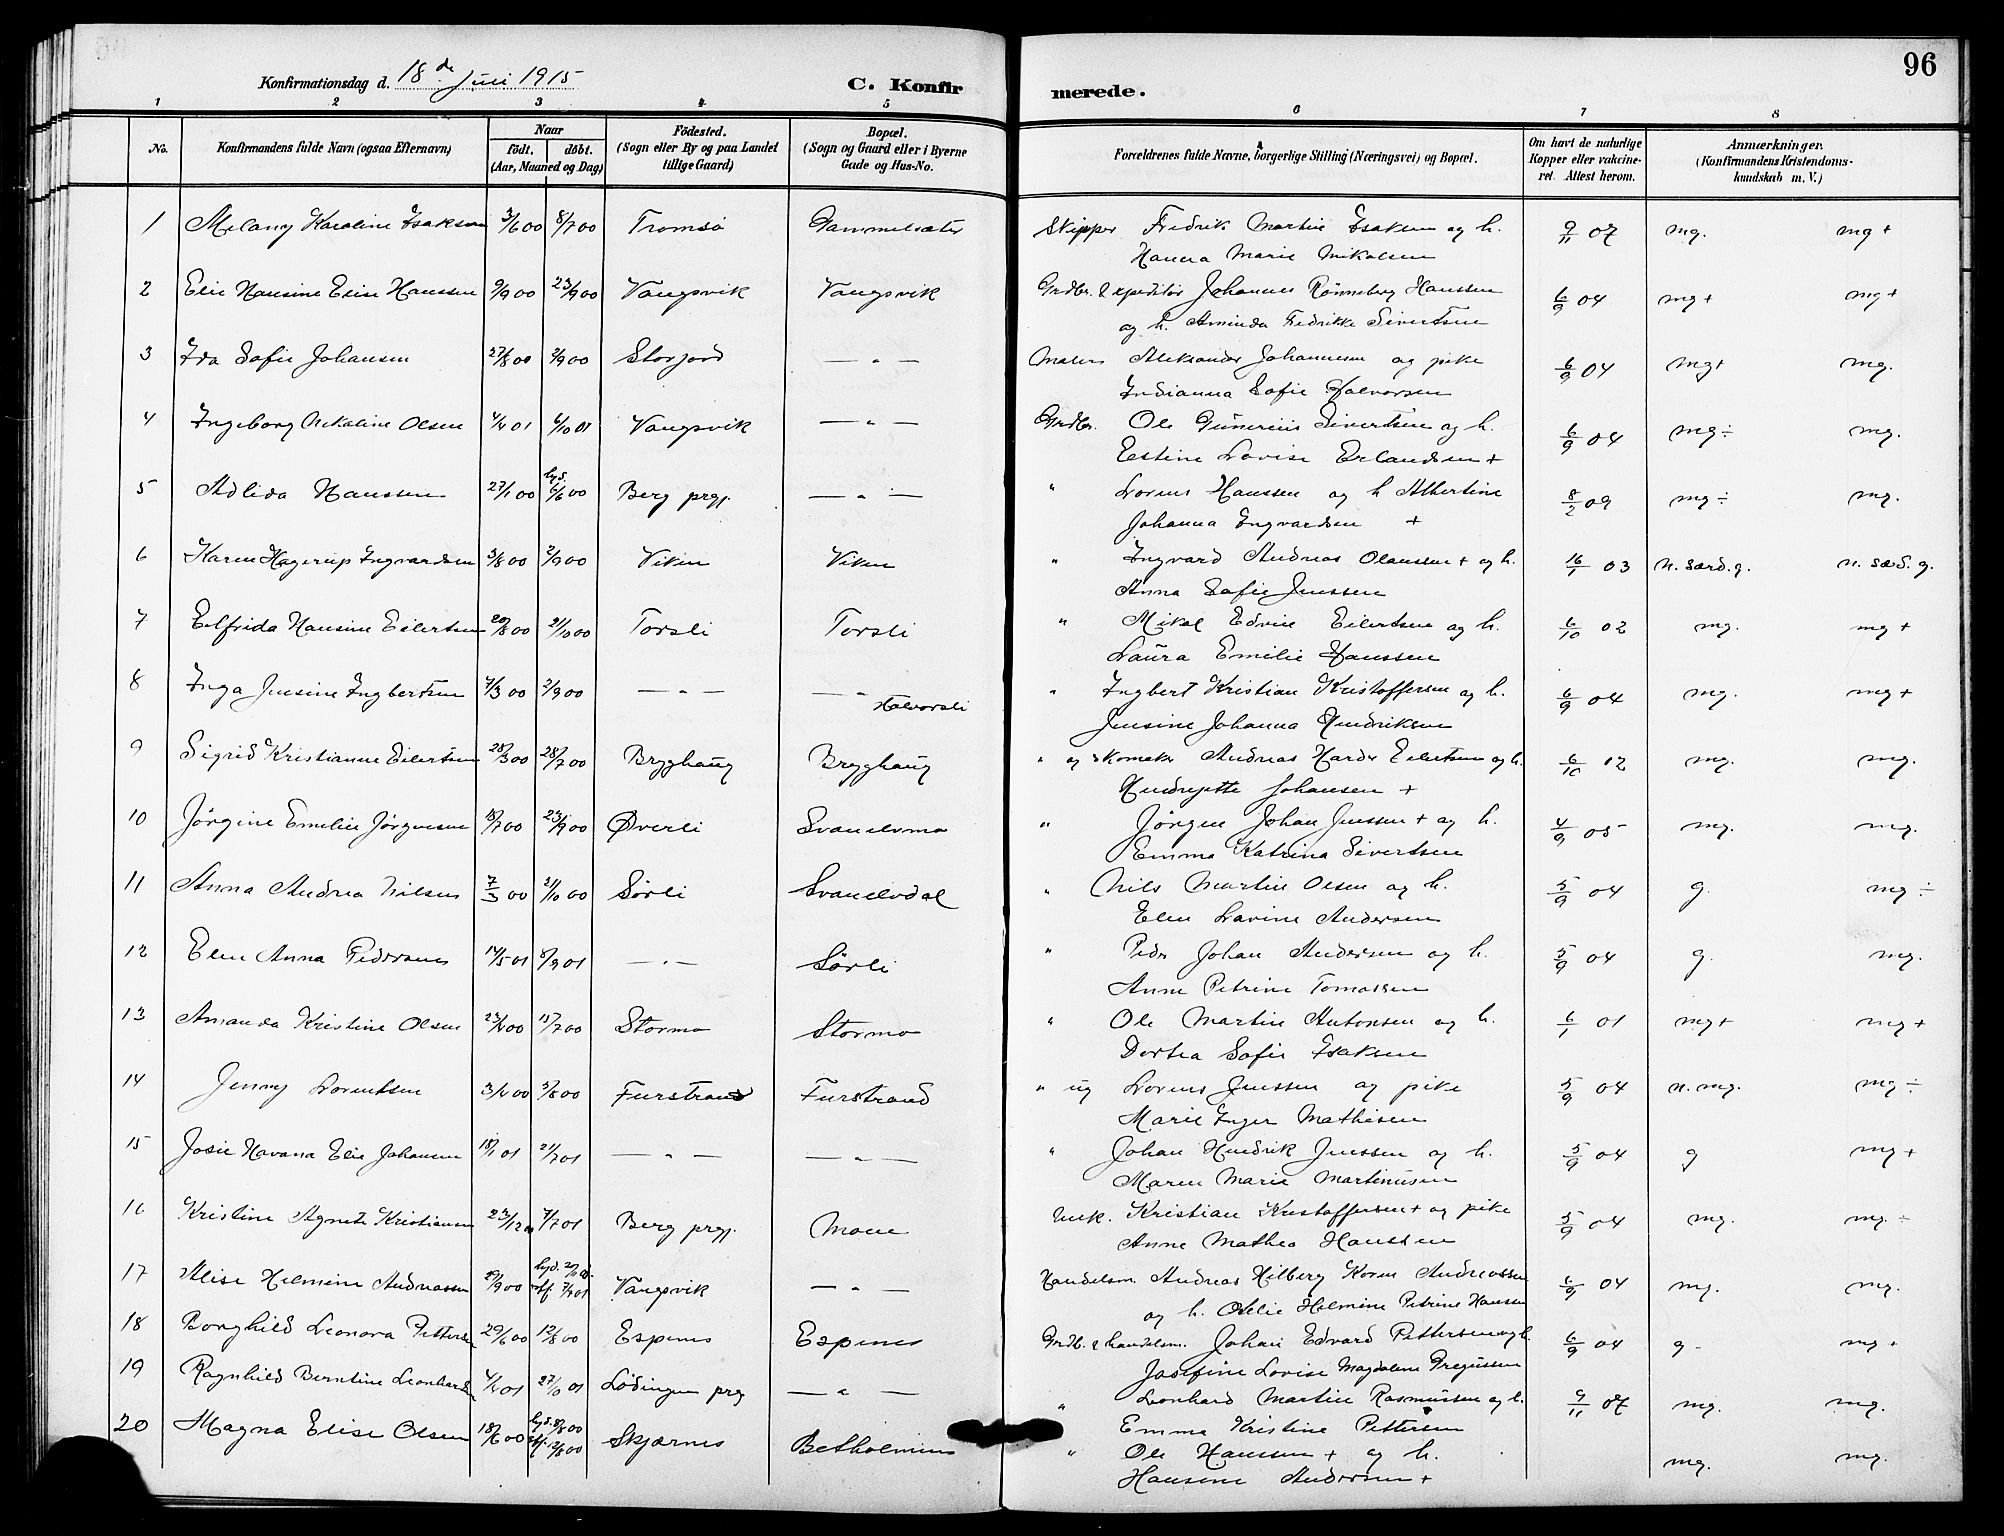 96
Konfirmationsdag d. 18de Juli 1915
C. Konfirmerede.
1 2 3 4 5 6 7 8
No. Konfirmandens fulde Navn (ogsaa Efternavn) Naar födt. döbt. (Aar, Maaned og Dag) Födested. (Sogn eller By og paa Landet tillige Gaard) Bopæl. (Sogn og Gaard eller i Byerne Gade og Hus-No. Forældrenes fulde Navne, borgerlige Stilling (Næringsvei) og Bopæl. Om havt de naturlige Kopper eller vaccineret. Attest herom. Anmærkninger. (Konfirmandens Kristendomskundskab m. V.)
1 Melany Karoline Isaksen 3/6 00 8/7 00 Tromsö Gammelsæter Skipper Fredrik Martin Isaksen og h. 9/11 07 mg. mg+
Hanna Marie Mikalsen
2 Elie Hansine Elise Hanssen 9/9 00 23/9 00 Vangsvik Vangsvik Grdbr. & expeditör Johannes Rönneberg Hanssen 6/9 04 mg+ mg+
og h. Aminda Fredrikke Sivertsen
3 Ida Sofie Johansen 27/8 00 2/9 00 Storjord — " — Maler Aleksander Johannesen og pike 6/9 04 mg+ mg.
Indianna Sofie Halvorsen
4 Ingeborg Nikoline Olsen 4/4 01 6/10 01 Vangsvik — " — Grdbr. Ole Gunerius Sivertsen og h. 6/9 04 mg÷ mg.
Estine Lovise Erlandsen +
5 Adlida Hanssen 27/1 00 hjd. 6/6 00 Berg prgj. — " — " Lorens Hanssen og h Albertine 8/2 09 mg÷ mg.
Johanna Ingvardsen +
6 Karen Hagerup Ingvardsen 3/8 00 2/9 00 Viken Viken " Ingvard Andreas Olaussen + og h. 16/1 03 n. særd. g. n. sæd. g.
Anna Sofie Jenssen
7 Elfrida Hansine Eilertsen 20/8 00 21/10 00 Torsli Torsli " Mikal Edvin Eilertsen og h. 6/10 02 mg. mg+
Laura Emilie Hanssen
8 Inga Jensine Ingbertsen 7/3 00 2/9 00 — " — — " Halvorsli " Ingbert Kristian Kristoffersen og h. 6/9 04 mg. mg+
Jensine Johanna Hendriksen
9 Sigrid Kristianne Eilertsen 28/3 00 28/7 00 Brygghaug Brygghaug " og skomaker Andreas Harder Eilertsen og h. 6/10 02 mg. mg.
Hendrijette Johansen +
10 Jörgine Emelie Jörgensen 18/7 00 23/9 00 Øverli Svanelvmo " Jörgen Johan Jenssen + og h. 4/9 05 mg. mg.
Emma Katrina Sivertsen
11 Anna Andrea Nilsen 7/3 00 21/10 00 Sörli Svanelvdal " Nils Martin Olsen og h. 5/9 04 g. mg÷
Elen Lavine Andersen
12 Elen Anna Pedersen 14/5 01 8/9 01 — " — Sörli " Peder Johan Andersen og h. 5/9 04 g. mg.
Anne Petrine Tomassen
13 Amanda Kristine Olsen 23/4 00 15/7 00 Stormo Stormo " Ole Martin Antonsen og h. 6/1 01 mg+ mg+
Dortea Sofie Isaksen
14 Jenny Lorentsen 3/4 00 5/8 00 Furstrand Furstrand " ug Lorens Jenssen og pike 5/9 04 n. mg. mg÷
Marie Inger Mathisen
15 Josie Havana Elie Johansen 18/1 01 21/7 01 — " — — " — " Johan Hendrik Jenssen og h. 5/9 04 g mg+
Maren Marie Martinusen
16 Kristine Agnete Kristiansen 23/12 00 7/7 01 Berg prgj. Moen Enk. Kristian Kristoffersen + og pike 5/9 04 mg. mg.÷
Anne Mathea Hanssen
17 Alise Helmine Andreassen 29/9 00 hjd. stf. 7/7 01 Vangsvik — " — Handelsm. Andreas Hilberg Koren Andreassen 6/9 04 mg. mg.
og h. Otelie Helmine Petrine Hanssen
18 Borghild Leonora Pettersen 29/6 00 12/8 00 Espenes Espenes Grdb. & handelsm. Johan Edvard Pettersen og h. 6/9 04 g - mg+
Josefine Lovise Magdalene Gregussen
19 Ragnhild Berntine Leonhardsen 4/4 01 27/10 01 Lödingen prgj — " — " Leonhard Martin Rasmussen og h. 9/11 07 mg. mg.
Emma Kristine Pettersen
20 Magna Elise Olsen 18/6 00 hjd. 8/8 00 stf. 12/8 00 Skjærnes Betholmen " Ole Hanssen + og h. mg. mg.
Hansine Andersen +